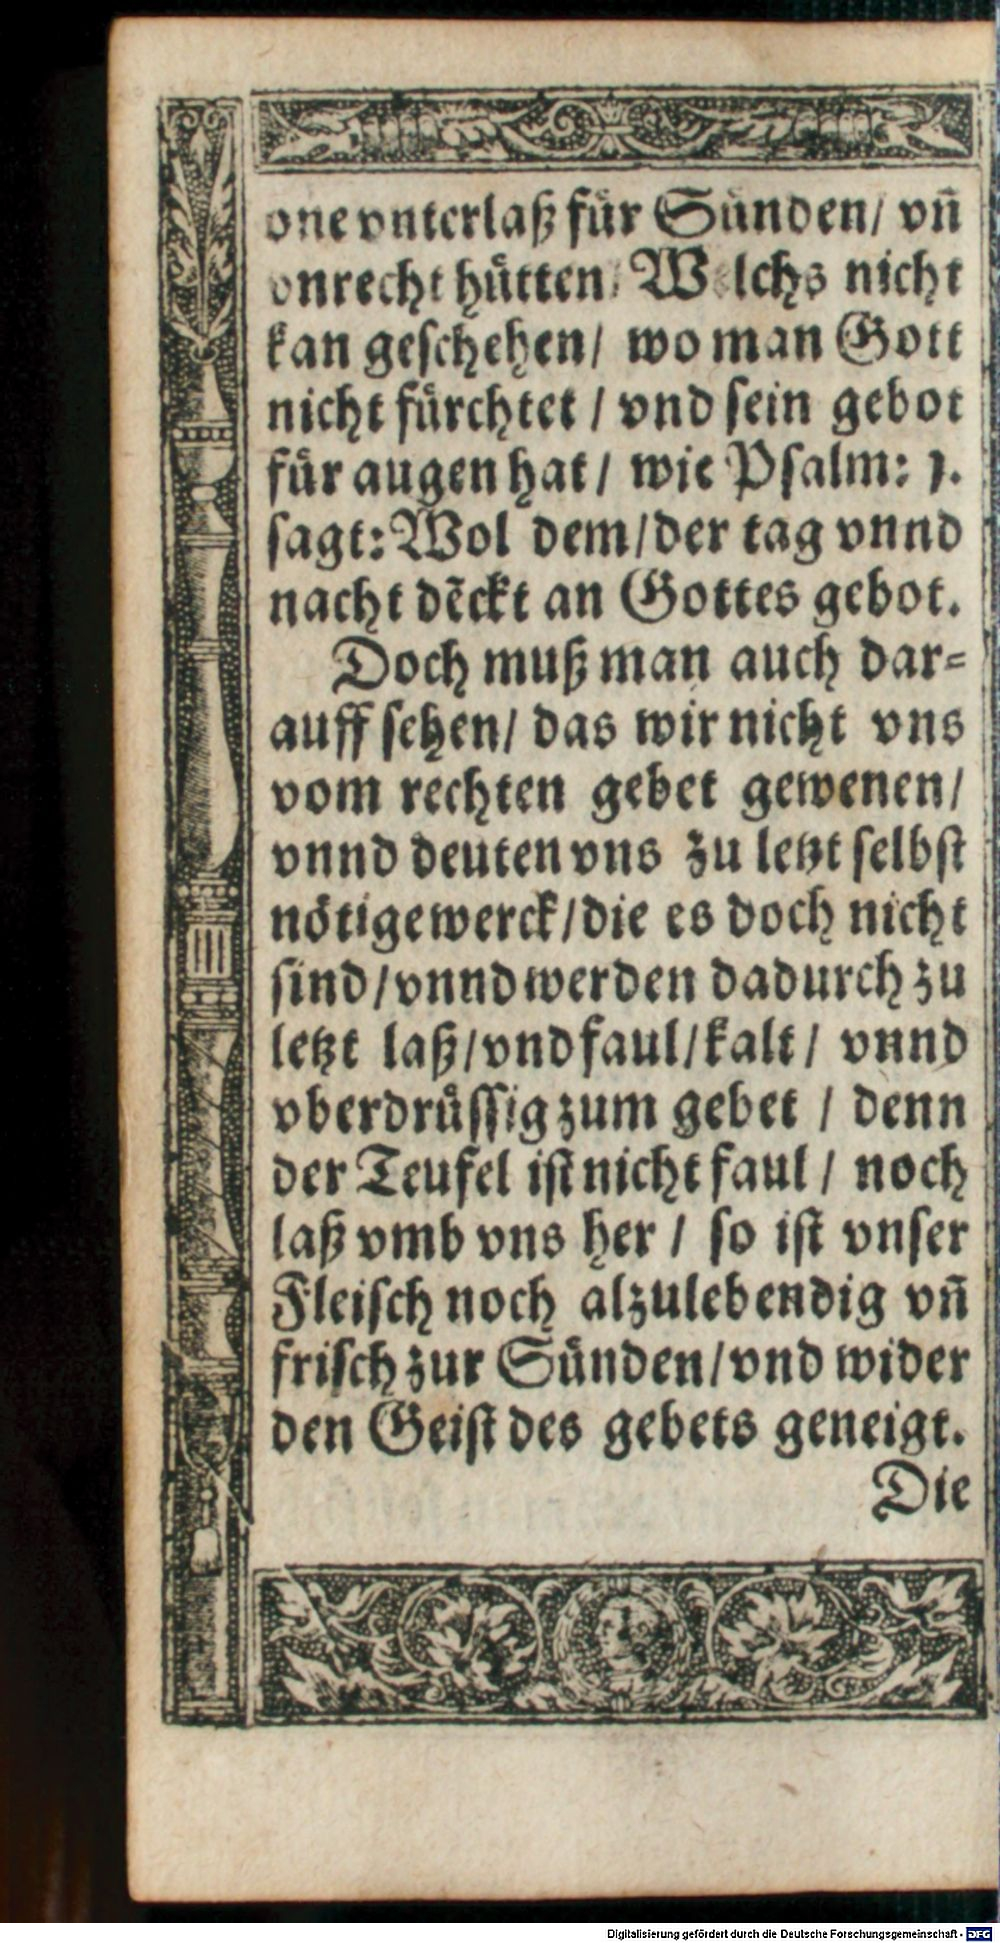 one vnterlaß für Sünden/ vñ
vnrecht hütten/ Welchs nicht
kan geschehen/ wo man Gott
nicht fürchtet / vnd sein gebot
für augen hat/ wie Psalm: 1.
sagt: Wol dem/der tag vnnd
nacht dẽckt an Gottes gebot.
Doch muß man auch dar=
auff sehen/ das wir nicht vns
vom rechten gebet gewenen/
vnnd deuten vns zu letzt selbst
nötige werck/die es doch nicht
sind/vnnd werden dadurch zu
letzt laß/vnd faul/kalt/ vnnd
vberdrüssig zum gebet / denn
der Teufel ist nicht faul / noch
laß vmb vns her / so ist vnser
Fleisch noch alzulebendig vñ
frisch zur Sünden/vnd wider
den Geist des gebets geneigt.
Die
Digitalisierung gefördert durch die Deutsche Forschungsgemeinschaft - DFG